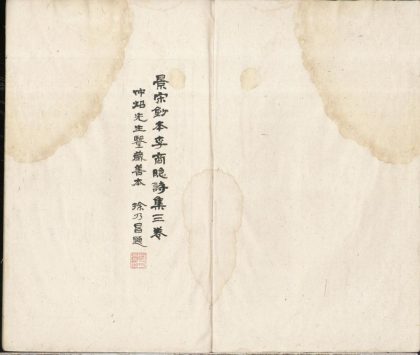 景宋鈔本李商隱詩集三卷
仲炤先生鑒藏善本 徐乃昌題